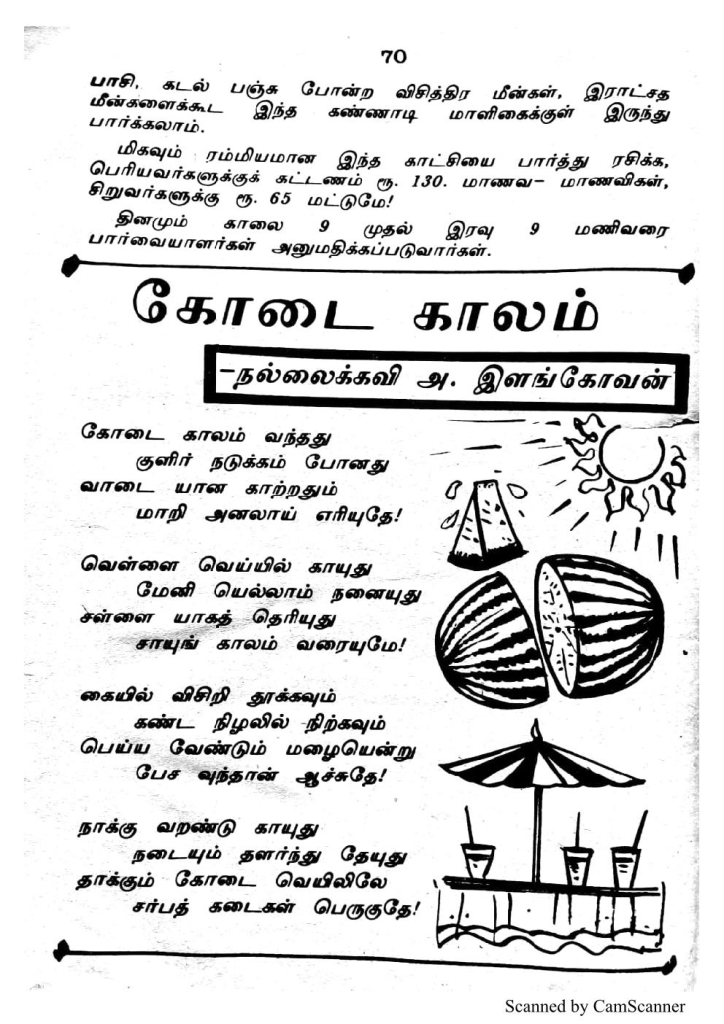 70
பாசி, கடல் பஞ்சு போன்ற விசித்திர மீன்கள், இராட்சத
மீன்களைக்கூட இந்த கண்ணாடி மாளிகைக்குள் இருந்து
பார்க்கலாம்.
மிகவும் ரம்மியமான இந்த காட்சியை பார்த்து ரசிக்க,
பெரியவர்களுக்குக் கட்டணம் ரூ. 130. மாணவ– மாணவிகள்,
சிறுவர்களுக்கு ரூ. 65 மட்டுமே!
தினமும் காலை 9 முதல் இரவு 9 மணிவரை
பார்வையாளர்கள் அனுமதிக்கப்படுவார்கள்.
கோடை காலம்
–நல்லைக்கவி அ. இளங்கோவன்
கோடை காலம் வந்தது
குளிர் நடுக்கம் போனது
வாடை யான காற்றதும்
மாறி அனலாய் எரியுதே!
வெள்ளை வெய்யில் காயுது
மேனி யெல்லாம் நனையுது
சள்ளை யாகத் தெரியுது
சாயுங் காலம் வரையுமே!
கையில் விசிறி தூக்கவும்
கண்ட நிழலில் நிற்கவும்
பெய்ய வேண்டும் மழையென்று
பேச வுந்தான் ஆச்சுதே!
நாக்கு வறண்டு காயுது
நடையும் தளர்ந்து தேயுது
தாக்கும் கோடை வெயிலிலே
சர்பத் கடைகள் பெருகுதே!
Scanned by CamScanner